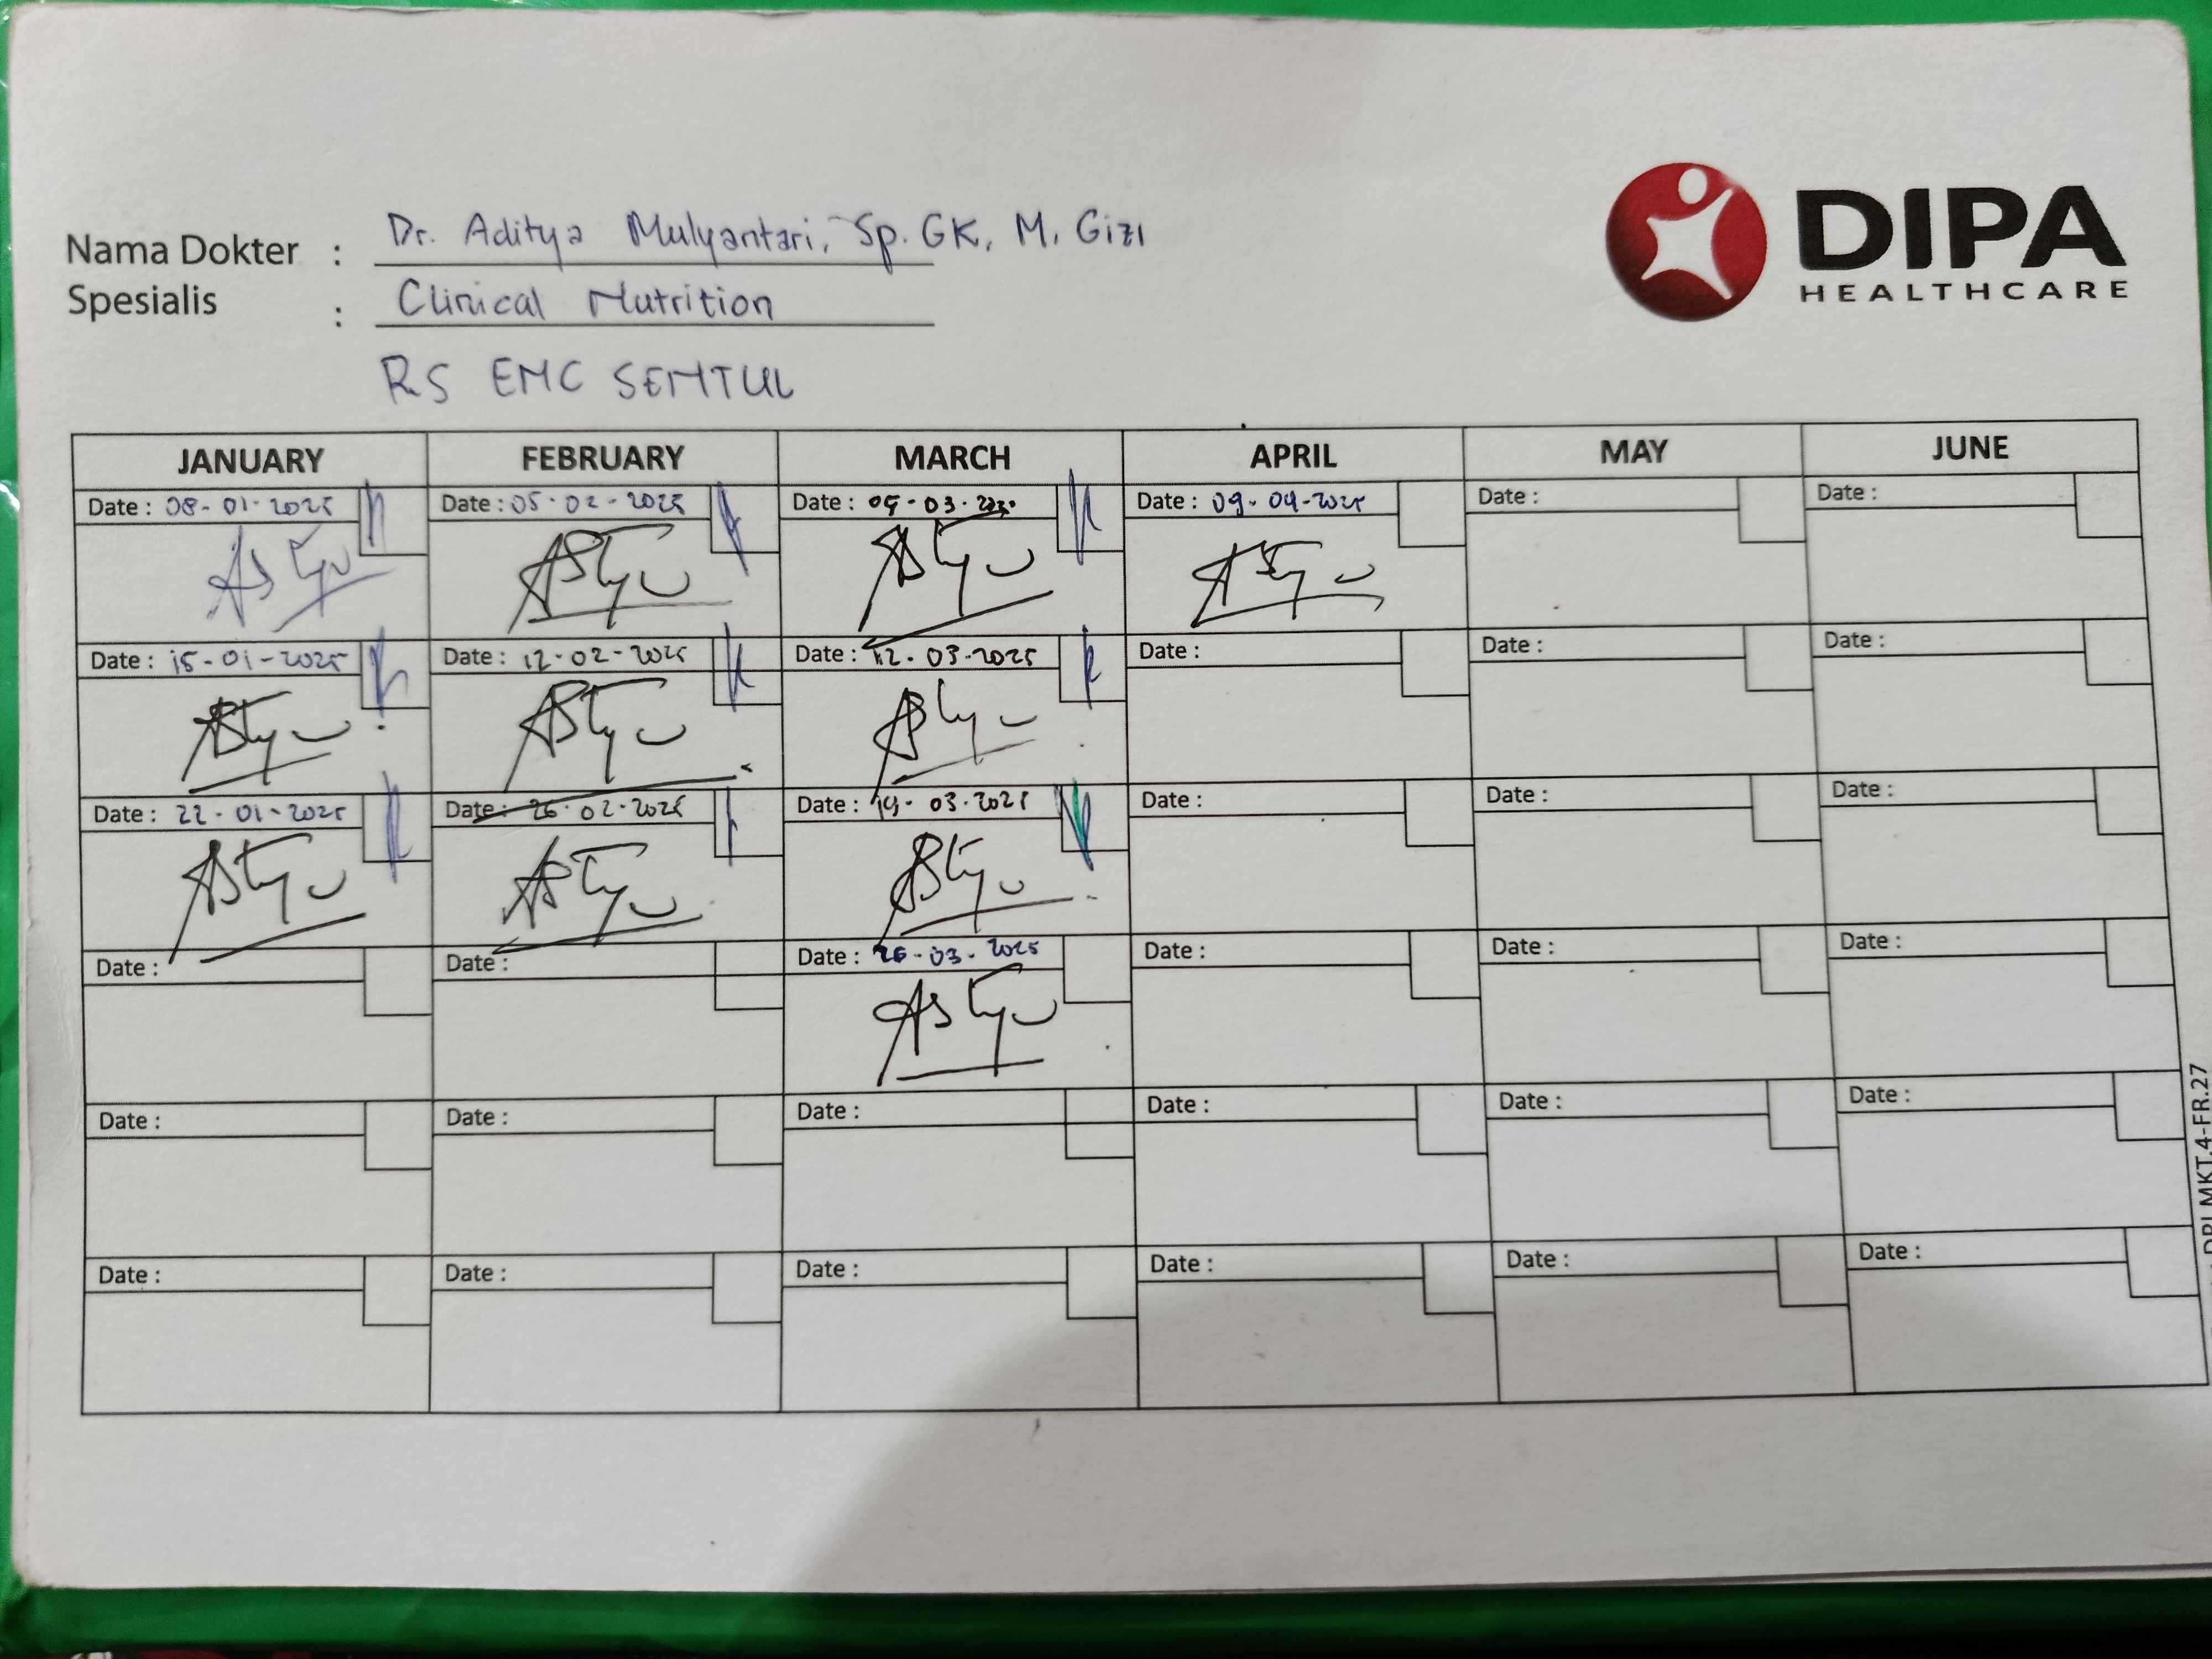 DIPA
HEALTHCARE
Nama Dokter : Dr. Aditya Mulyantari, Sp. GK, M. Gizi
Spesialis : Clinical Nutrition
RS EMC SENTUL
JANUARY FEBRUARY MARCH APRIL MAY JUNE
Date : 08-01-2025 Date : 05-02-2025 Date : 05-03- Date : 09-04-2025 Date : Date :
Date : 15-01-2025 Date : 12-02-2025 Date : 12-03-2025 Date : Date : Date :
Date : 22-01-2025 Date : 26-02-2025 Date : 19-03-2025 Date : Date : Date :
Date : Date : Date : 26-03-2025 Date : Date : Date :
Date : Date : Date : Date : Date : Date :
Date : Date : Date : Date : Date : Date :
DPI.MKT.4-FR.27